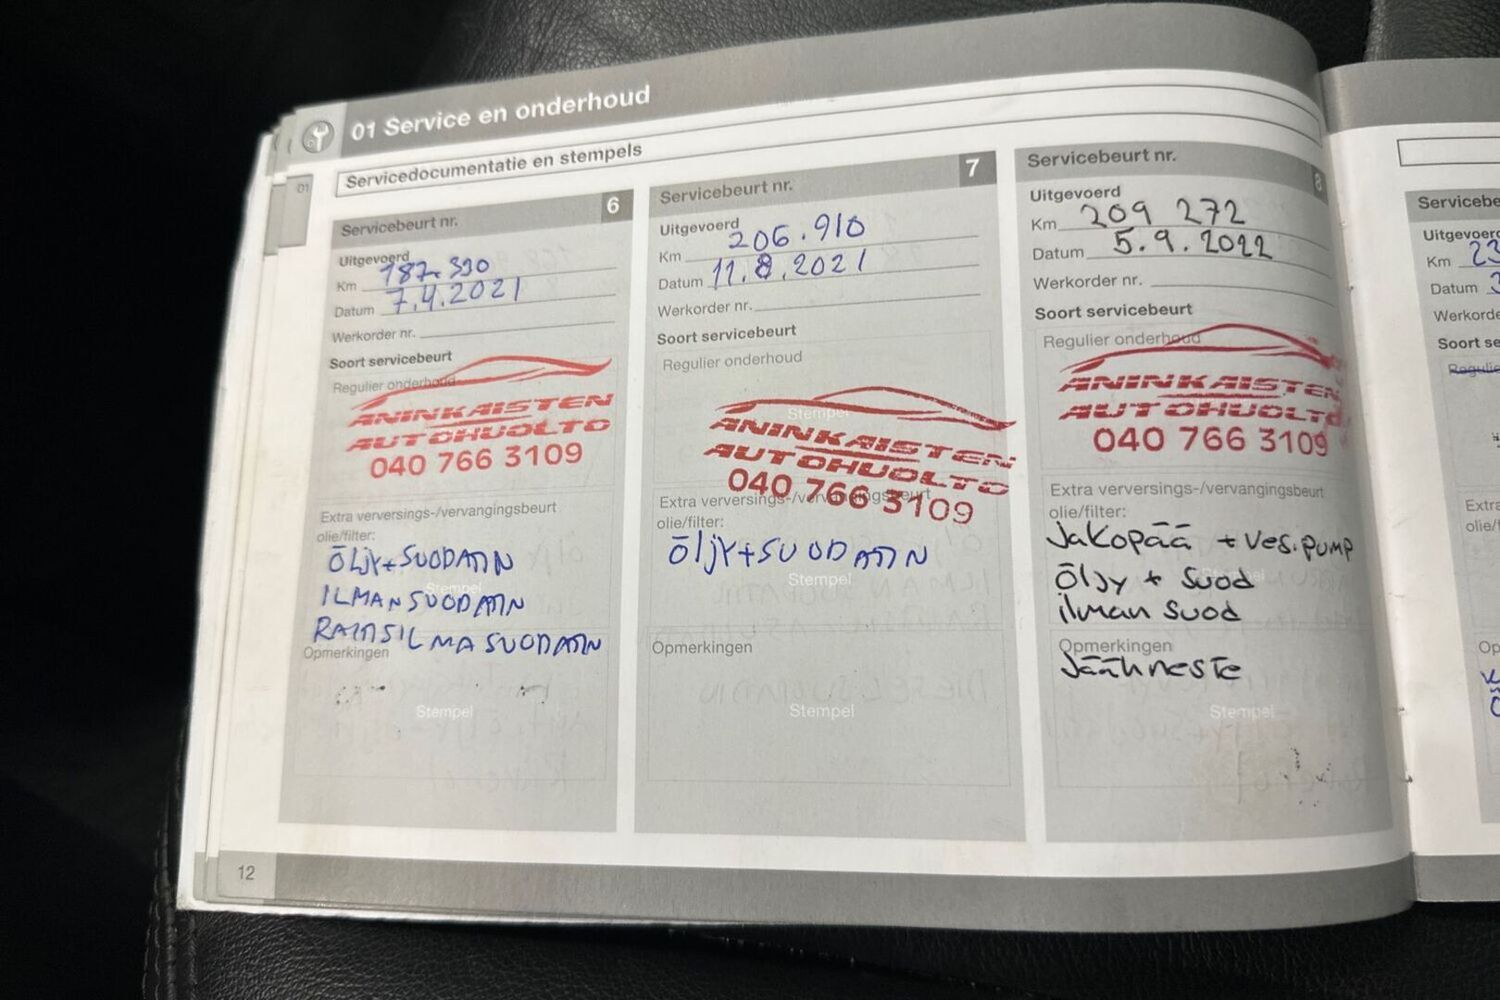 01 Service en onderhoud
01
Servicedocumentatie en stempels
Servicebeurt nr. 6
Uitgevoerd
Km 187.390
Datum 7.4.2021
Werkorder nr.
Soort servicebeurt
Regulier onderhoud
ANINKAISTEN
AUTOHUOLTO
040 766 3109
Extra verversings-/vervangingsbeurt
olie/filter:
ÖLJY+SUODATIN
Stempel
ILMANSUODATIN
RAITISILMASUODATIN
Opmerkingen
Stempel
Servicebeurt nr. 7
Uitgevoerd
Km 206.910
Datum 11.8.2021
Werkorder nr.
Soort servicebeurt
Regulier onderhoud
Stempel
ANINKAISTEN
AUTOHUOLTO
040 766 3109
Extra verversings-/vervangingsbeurt
olie/filter:
ÖLJY+SUODATIN
Stempel
Opmerkingen
Stempel
Servicebeurt nr. 8
Uitgevoerd
Km 209 272
Datum 5.9.2022
Werkorder nr.
Soort servicebeurt
Regulier onderhoud
ANINKAISTEN
AUTOHUOLTO
040 766 3109
Extra verversings-/vervangingsbeurt
olie/filter:
Jakopää + ves.pump
Öljy + Suod
ilman Suod
Opmerkingen
Jäähneste
Stempel
Uitgevoerd
Km 23
Datum 3
Soort se
12